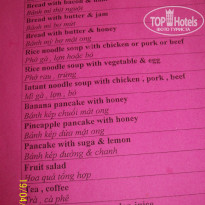 Bread with bacon &
Bánh mì thịt nguội
Bread with butter & jam
Bánh mì bơ mứt
Bread with butter & honey
Bánh mì bơ mật ong
Rice noodle soup with chicken or pork or beef
Phở gà, lợn hoặc bò
Rice noodle soup with vegetable & egg
Phở rau, trứng
Istant noodle soup with chicken , pork , beef
Mì gà , lợn , bò
Banana pancake with honey
Bánh kếp chuối mật ong
Pineapple pancake with honey
Bánh kếp dứa mật ong
Pancake with suga & lemon
Bánh kếp đường & chanh
Fruit salad
Hoa quả tổng hợp
Tea , coffee
Trà , cà phê
TOP HOTELS
19/04